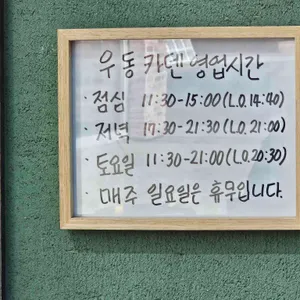 우동 카덴 영업시간
· 점심 11:30-15:00(L.O.14:40)
· 저녁 17:30-21:30(L.O.21:00)
· 토요일 11:30-21:00(L.O.20:30)
· 매주 일요일은 휴무입니다.